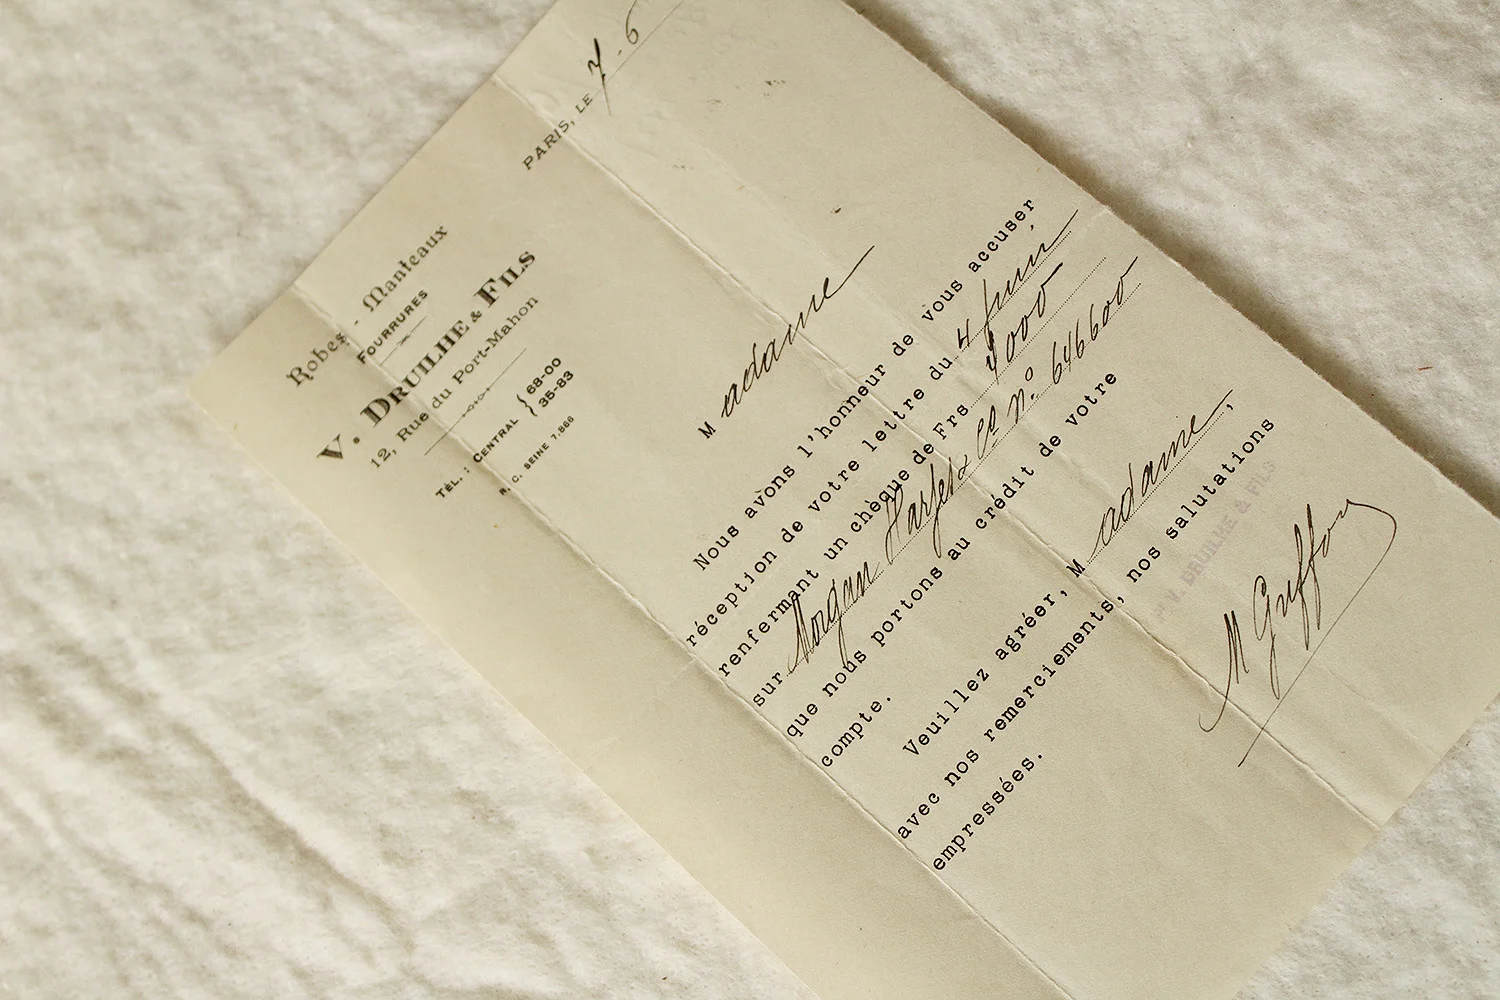 Robes - Manteaux
FOURRURES
V. DRUILHE & FILS
12, Rue du Port-Mahon
TÉL.: CENTRAL { 68-00
35-83
R. C. SEINE 7.866
PARIS, LE 7-6
Madame
Nous avons l'honneur de vous accuser
réception de votre lettre du 4 Juin
renfermant un chèque de Frs 4000
sur Morgan Harjes & Co No. 646600
que nous portons au crédit de votre
compte.
Veuillez agréer, Madame,
avec nos remerciements, nos salutations
empressées.
V. DRUILHE & FILS